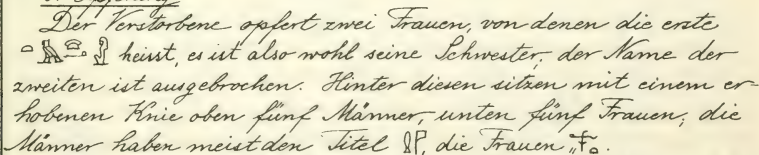 Der Verstorbene opfert zwei Frauen, von denen die erste
heisst, es ist also wohl seine Schwester, der Name der
zweiten ist ausgebrochen. Hinter diesen sitzen mit einem er-
hobenen Knie oben fünf Männer, unten fünf Frauen; die
Männer haben meist den Titel 𓊹𓍛, die Frauen „